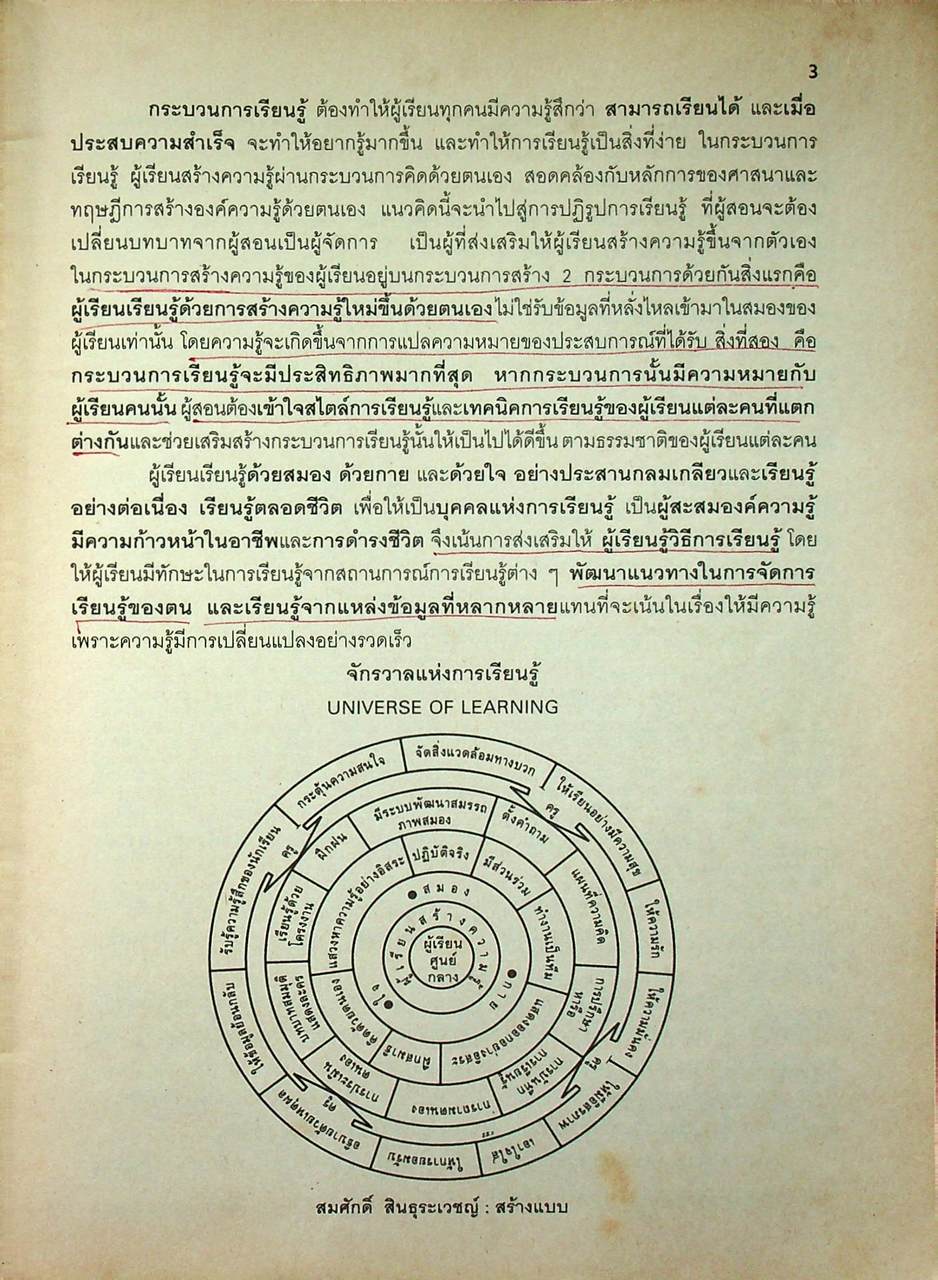 3
กระบวนการเรียนรู้ ต้องทำให้ผู้เรียนทุกคนมีความรู้สึกว่า สามารถเรียนได้ และเมื่อ
ประสบความสำเร็จ จะทำให้อยากรู้มากขึ้น และทำให้การเรียนรู้เป็นสิ่งที่ง่าย ในกระบวนการ
เรียนรู้ ผู้เรียนสร้างความรู้ผ่านกระบวนการคิดด้วยตนเอง สอดคล้องกับหลักการของศาสนาและ
ทฤษฎีการสร้างองค์ความรู้ด้วยตนเอง แนวคิดนี้จะนำไปสู่การปฏิรูปการเรียนรู้ ที่ผู้สอนจะต้อง
เปลี่ยนบทบาทจากผู้สอนเป็นผู้จัดการ เป็นผู้ที่ส่งเสริมให้ผู้เรียนสร้างความรู้ขึ้นจากตัวเอง
ในกระบวนการสร้างความรู้ของผู้เรียนอยู่บนกระบวนการสร้าง 2 กระบวนการด้วยกันสิ่งแรกคือ
ผู้เรียนเรียนรู้ด้วยการสร้างความรู้ใหม่ขึ้นด้วยตนเองไม่ใช่รับข้อมูลที่หลั่งไหลเข้ามาในสมองของ
ผู้เรียนเท่านั้น โดยความรู้จะเกิดขึ้นจากการแปลความหมายของประสบการณ์ที่ได้รับ สิ่งที่สอง คือ
กระบวนการเรียนรู้จะมีประสิทธิภาพมากที่สุด หากกระบวนการนั้นมีความหมายกับ
ผู้เรียนคนนั้น ผู้สอนต้องเข้าใจสไตล์การเรียนรู้และเทคนิคการเรียนรู้ของผู้เรียนแต่ละคนที่แตก
ต่างกันและช่วยเสริมสร้างกระบวนการเรียนรู้นั้นให้เป็นไปได้ดีขึ้น ตามธรรมชาติของผู้เรียนแต่ละคน
ผู้เรียนเรียนรู้ด้วยสมอง ด้วยกาย และด้วยใจ อย่างประสานกลมเกลียวและเรียนรู้
อย่างต่อเนื่อง เรียนรู้ตลอดชีวิต เพื่อให้เป็นบุคคลแห่งการเรียนรู้ เป็นผู้สะสมองค์ความรู้
มีความก้าวหน้าในอาชีพและการดำรงชีวิต จึงเน้นการส่งเสริมให้ ผู้เรียนรู้วิธีการเรียนรู้ โดย
ให้ผู้เรียนมีทักษะในการเรียนรู้จากสถานการณ์การเรียนรู้ต่าง ๆ พัฒนาแนวทางในการจัดการ
เรียนรู้ของตน และเรียนรู้จากแหล่งข้อมูลที่หลากหลายแทนที่จะเน้นในเรื่องให้มีความรู้
เพราะความรู้มีการเปลี่ยนแปลงอย่างรวดเร็ว
จักรวาลแห่งการเรียนรู้
UNIVERSE OF LEARNING
จัดสิ่งแวดล้อมทางบวก
ให้เรียนอย่างมีความสุข
ให้ความรัก
ให้ความมั่นคง
ให้มีอิสรภาพ
เอาใจใส่
ให้การยอมรับ
อธิบายด้วยเหตุผล
ให้ข้อมูลย้อนกลับ
รับรู้ความรู้สึกของนักเรียน
กระตุ้นความสนใจ
ครู
ครู
ครู
ครู
มีระบบพัฒนาสมรรถ
ภาพสมอง
ตั้งคำถาม
แผนที่ความคิด
การปรึกษา
หารือ
การบันทึก
การเรียนรู้
การถามตนเอง
การประเมิน
ตนเอง
แสดงละคร
บทบาทสมมุติ
เรียนรู้ด้วย
โครงงาน
ฝึกฝน
ปฏิบัติจริง
มีส่วนร่วม
ทำงานเป็นทีม
แสดงออกอย่างอิสระ
ฝึกสมาธิ
คิดด้วยตนเอง
แสวงหาความรู้อย่างอิสระ
สมอง
กาย
ใจ
ผู้เรียนสร้างความรู้
ผู้เรียน
ศูนย์
กลาง
สมศักดิ์ สินธุระเวชญ์ : สร้างแบบ